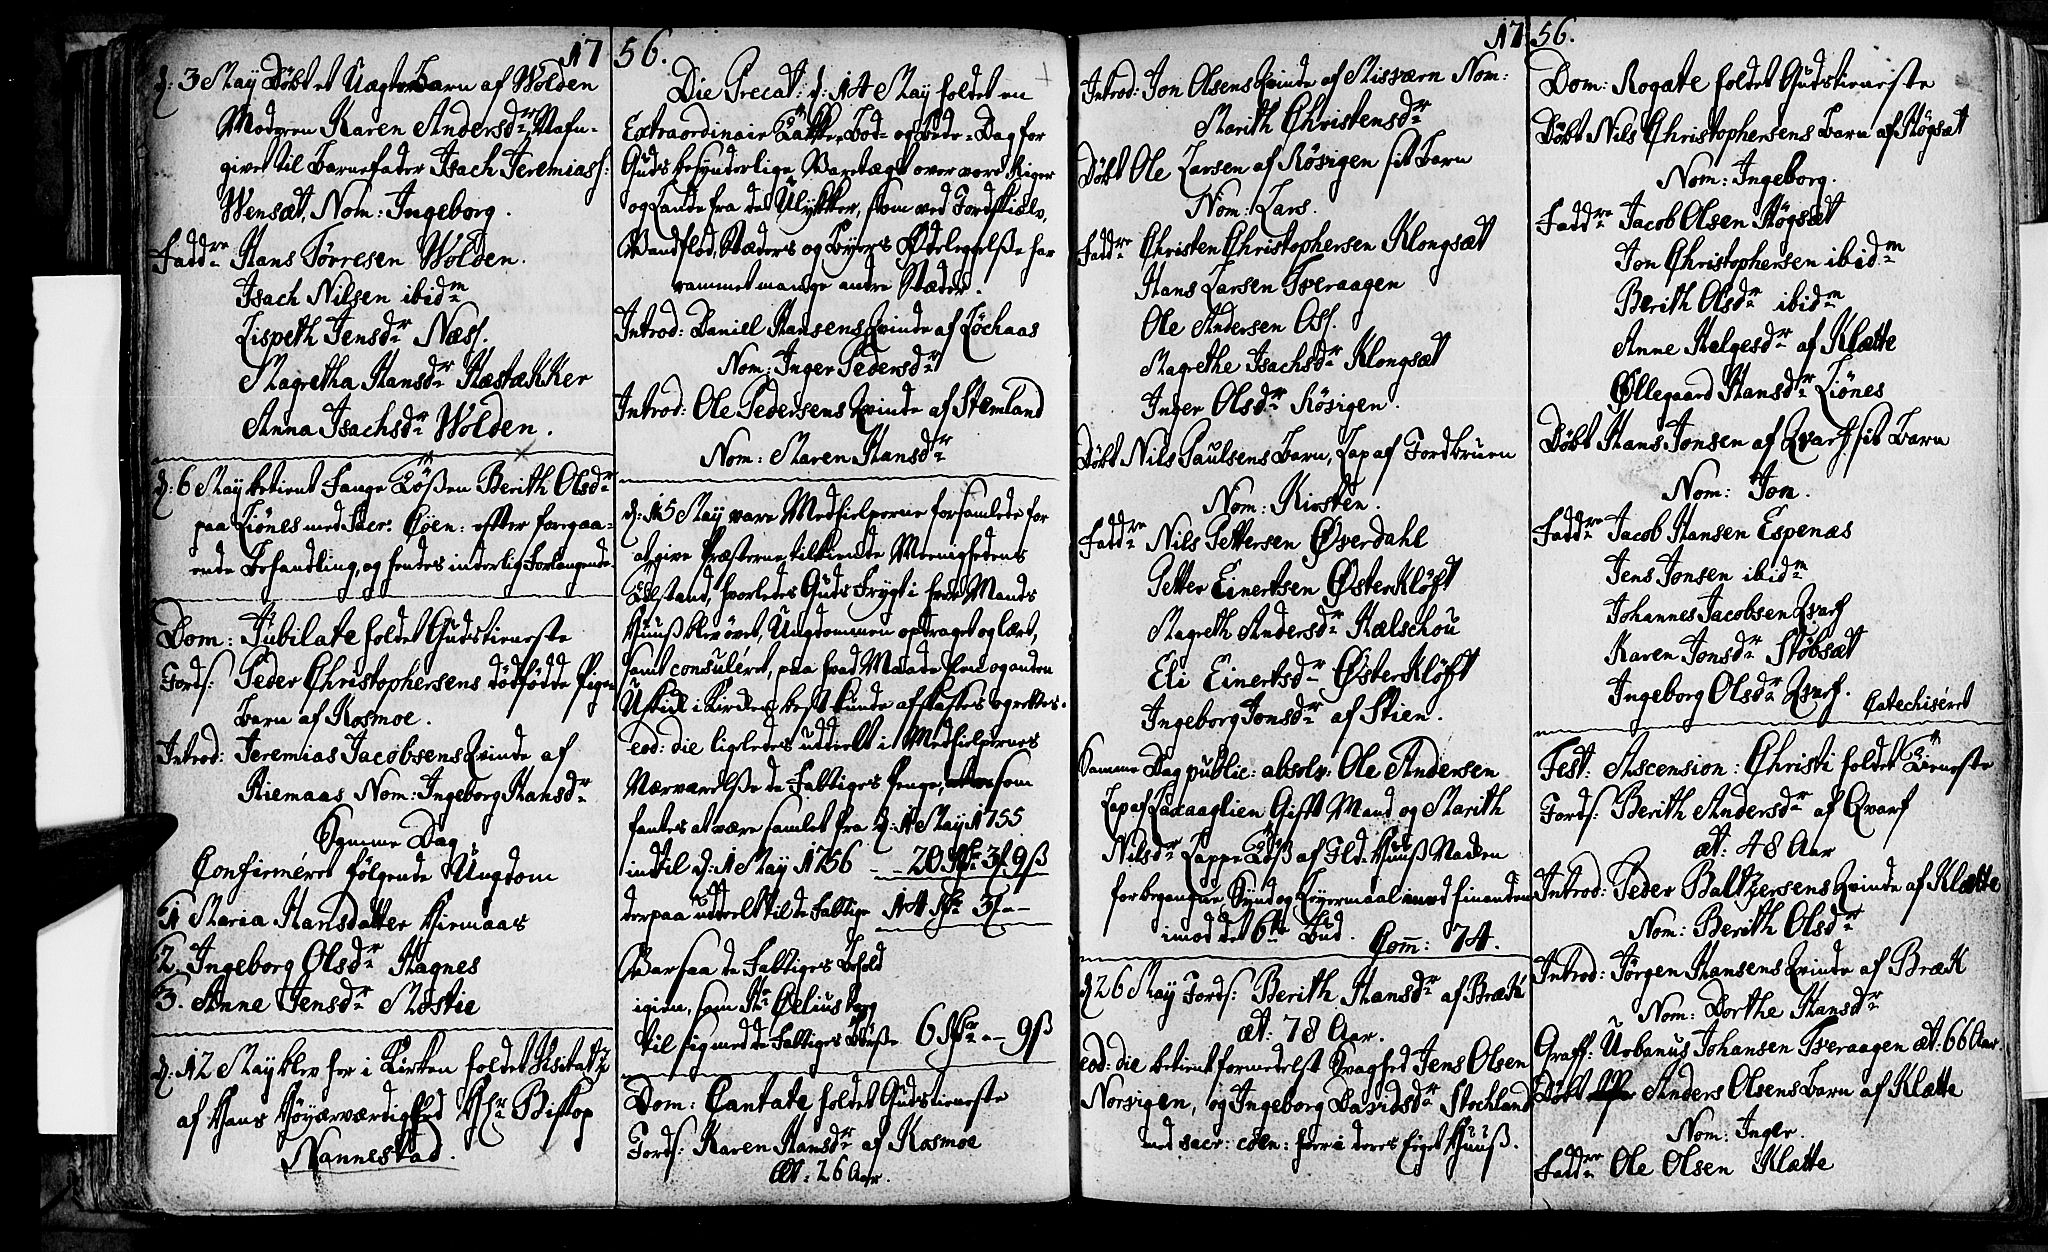 1756.
d: 3 May Döbt et Uægte Barn af Wolden
Modren Karen Andersdr, Nafn-
givet til Barnefader Isach Jeremiass:
Wensæt, Nom: Ingeborg.
Faddre Hans Törresen Wolden.
Isach Nilsen ibidm
Lispeth Jensdr Næss.
Magretha Hansdr Hæstækker
Anna Isachsdr Wolden.
d: 6 May betient Fange Berith Olsdr
paa Liönes med Sacr: Cöen: efter foregaa-
ende Behandling, og hendes inderlig Forlangende
Dom: Jubilate holdet Gudstieneste
Jords: Peder Christophersens dödfödde Pige-
Barn af Kosmoe.
Introd: Jeremias Jacobsens Qvinde af
Kiemaas Nom: Ingeborg Hansdr
Samme Dag
Confirméret fölgende Ungdom
1 Maria Hansdatter Hiemaas
2. Ingeborg Olsdr Hagnes
3. Anne Jensdr Mostie
d: 12 May blev her i Kirken holdet Visitatz
af Hans Höyærværdighed Hr Biskop
Nannestad.
Die Precat: d: 14 May holdet en
Extraordinair Takke- Bod- og Bede-Dag for
Guds besynderlige Varetægt over vore Riger
og Lande fra de Ulykker, som ved Jordskiælv,
Vandflod, Stæders og Byers Ödeleggelsse har
rammet mange andre Stæder.
Introd: Daniel Hansens Qvinde af Löchaas
Nom: Inger Pedersdr
Introd: Ole Pedersens Qvinde af Stemland
Nom: Maren Hansdr
d: 15 May vare Medhielperne forsamlede for
at give Præsterne tilkiende Meenighedens
Tilstand, hvorledes Guds Frygt i hver Mands
Huuss blev övet, Ungdommen optraget og lært,
samt consuléret, paa hvad Maade een og anden
Uskik i Kirken best kunde afskaffes og rettes.
eod: die ligledes uddeelt i Medhielpernes
Nærværelsse de Fattiges Penge, som
fantes at være samlet fra d: 1 May 1755
indtil d: 1 May 1756 - - 20 Rdr 3 f 9 ß
derpaa uddeelt til de Fattige 14 Rdr 3 f - -
Var saa de Fattiges Behold
igien, som Hr Cælius tog
til sig med de Fattiges Bösse 6 Rdr - - 9 ß
Dom: Cantate holdet Gudstieneste
Jords: Karen Hansdr af Kosmoe
Æt: 26 Aar.
1756.
Introd: Jon Olsens Qvinde af Misværn Nom:
Marith Christensdr
Döbt Ole Larsen af Rösvigen sit Barn
Nom: Lars.
Faddre Christen Christophersen Klongsæt
Hans Larsen Tveraagen
Ole Andersen Oss.
Magrethe Isachsdr Klongsæt
Inger Olsdr Rösvigen.
Döbt Nils Paulsens Barn, Lap af Jordbruen
Nom: Kirsten.
Faddre Nils Pettersen Överdahl
Petter Einertsen Österklöft
Magreth Andersdr Hælschou
Eli Einertsdr Österklöft
Ingeborg Jonsdr af Stien.
Samme Dag public: absolv: Ole Andersen
Lap af Gift Mand og Marith
Nilsdr Lappe af
for begangne Synd og Leyermaal
imod det 6te Bud. Com: 74.
d 26 May Jords: Berith Hansdr af Bræk
æt: 78 Aar.
eod: die betient formedelst Svaghed Jens Olsen
Norvigen, og Ingeborg Davidsdr Stochland
med sacr: cöen: hver i deres Eyet Huuss.
Dom: Rogate holdet Gudstieneste
Döbt Nils Christophersens Barn af Högsæt
Nom: Ingeborg.
Faddre Jacob Olsen Högsæt
Jon Christophersen ibidm
Berith Olsdr ibidm
Anne Helgesdr af Klætte
Öllegaard Hansdr Liönes
Döbt Hans Jonsen af Qvarf sit Barn
Nom: Jon.
Faddre Jacob Hansen Espenæs
Jens Jonsen ibidm
Johannes Jacobsen Qvarf
Karen Jonsdr Stöbsæt
Ingeborg Olsdr Qvarf. Catechiséret
Fest: Ascension: Christi holdet Tieneste
Jords: Berith Andersdr af Qvarf
æt: 48 Aar
Introd: Peder Baltzersens Qvinde af Klætte
Nom: Berith Olsdr
Introd: Jörgen Hansens Qvinde af Bræk
Nom: Dorthe Hansdr
Graff: Urbanus Johansen Tveraagen æt: 66 Aar.
Döbt Anders Olsens Barn af Klætte
Nom: Inger.
Faddre Ole Olsen Klætte